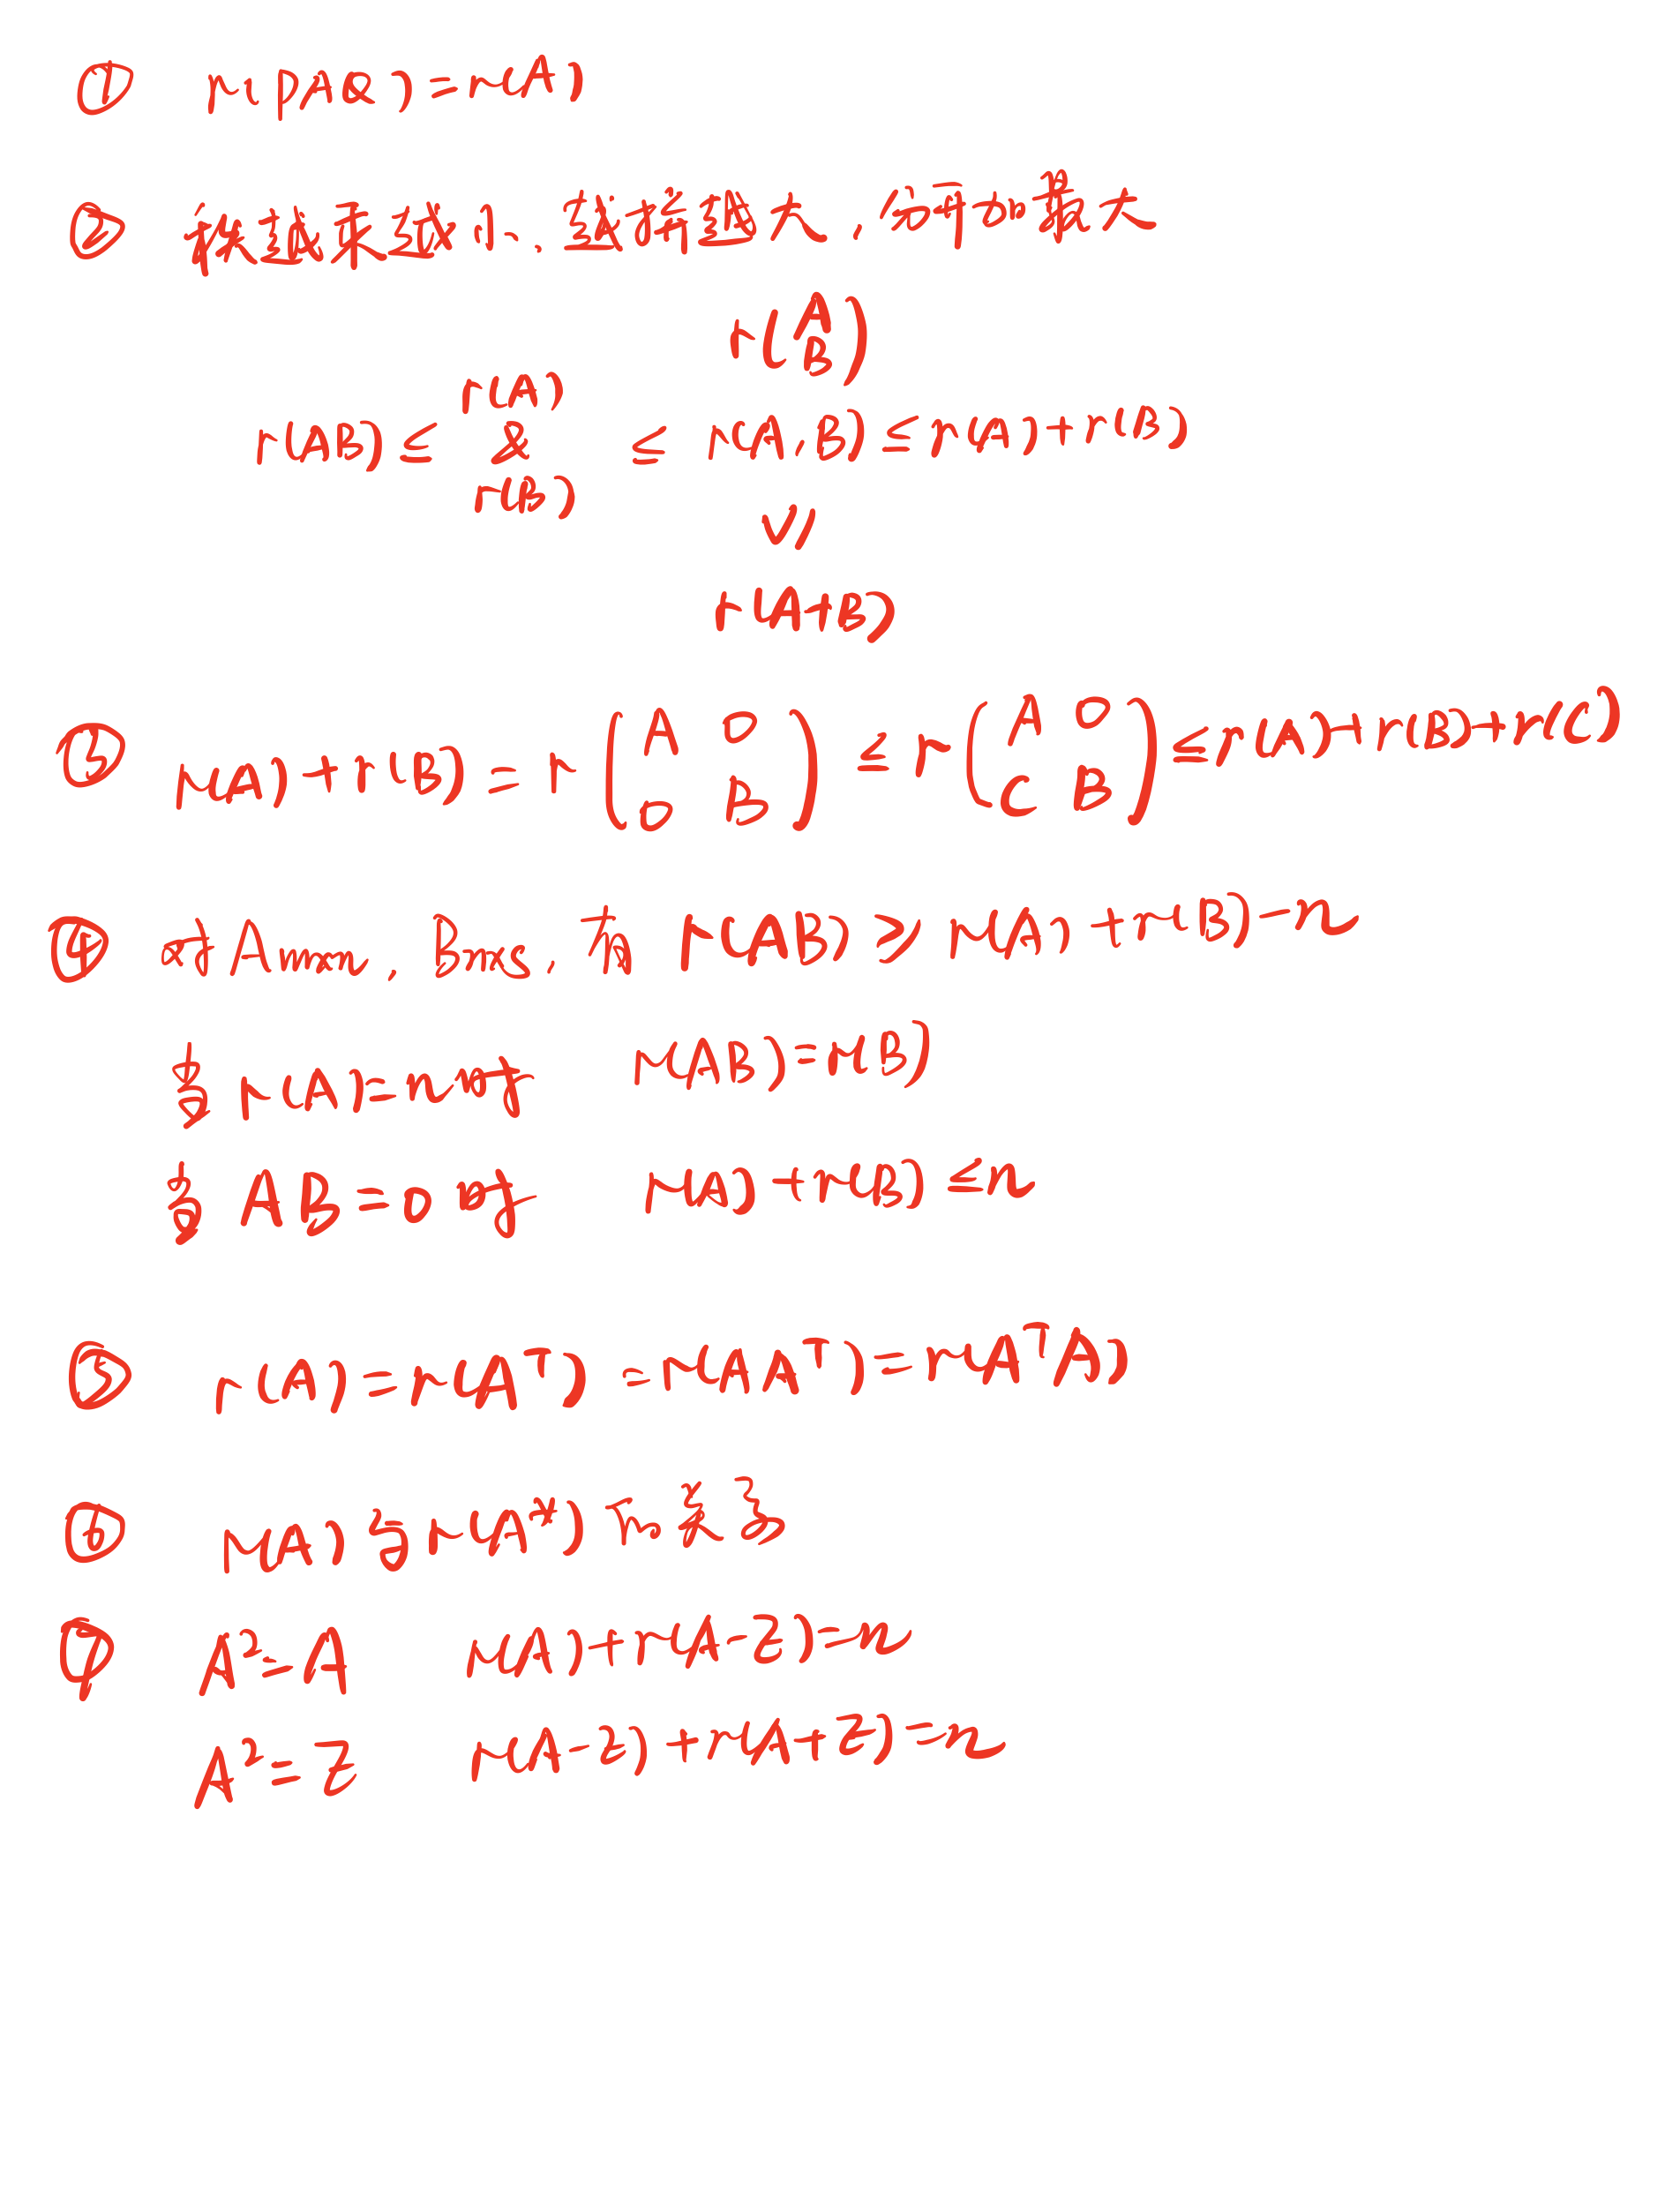 ① r(PAQ)=r(A)
② 秩越乘越小, 越拼越大, 分开加最大
r(A B)
r(AB) ≤ r(A) & r(B) ≤ r(A,B) ≤ r(A)+r(B)
∨/
r(A+B)
③ r(A)+r(B)=r(A 0 0 B) ≤ r(A 0 C B) ≤ r(A)+r(B)+r(C)
④ 对Am×n, Bn×s, 有 r(AB) ≥ r(A)+r(B)-n
当 r(A)=n时 r(AB)=r(B)
当 AB=0时 r(A)+r(B) ≤n
⑤ r(A)=r(Aᵀ)=r(AAᵀ)=r(AᵀA)
⑥ r(A)与r(A*)的关系
⑦ A²=A r(A)+r(A-E)=n
A²=E r(A-E)+r(A+E)=n